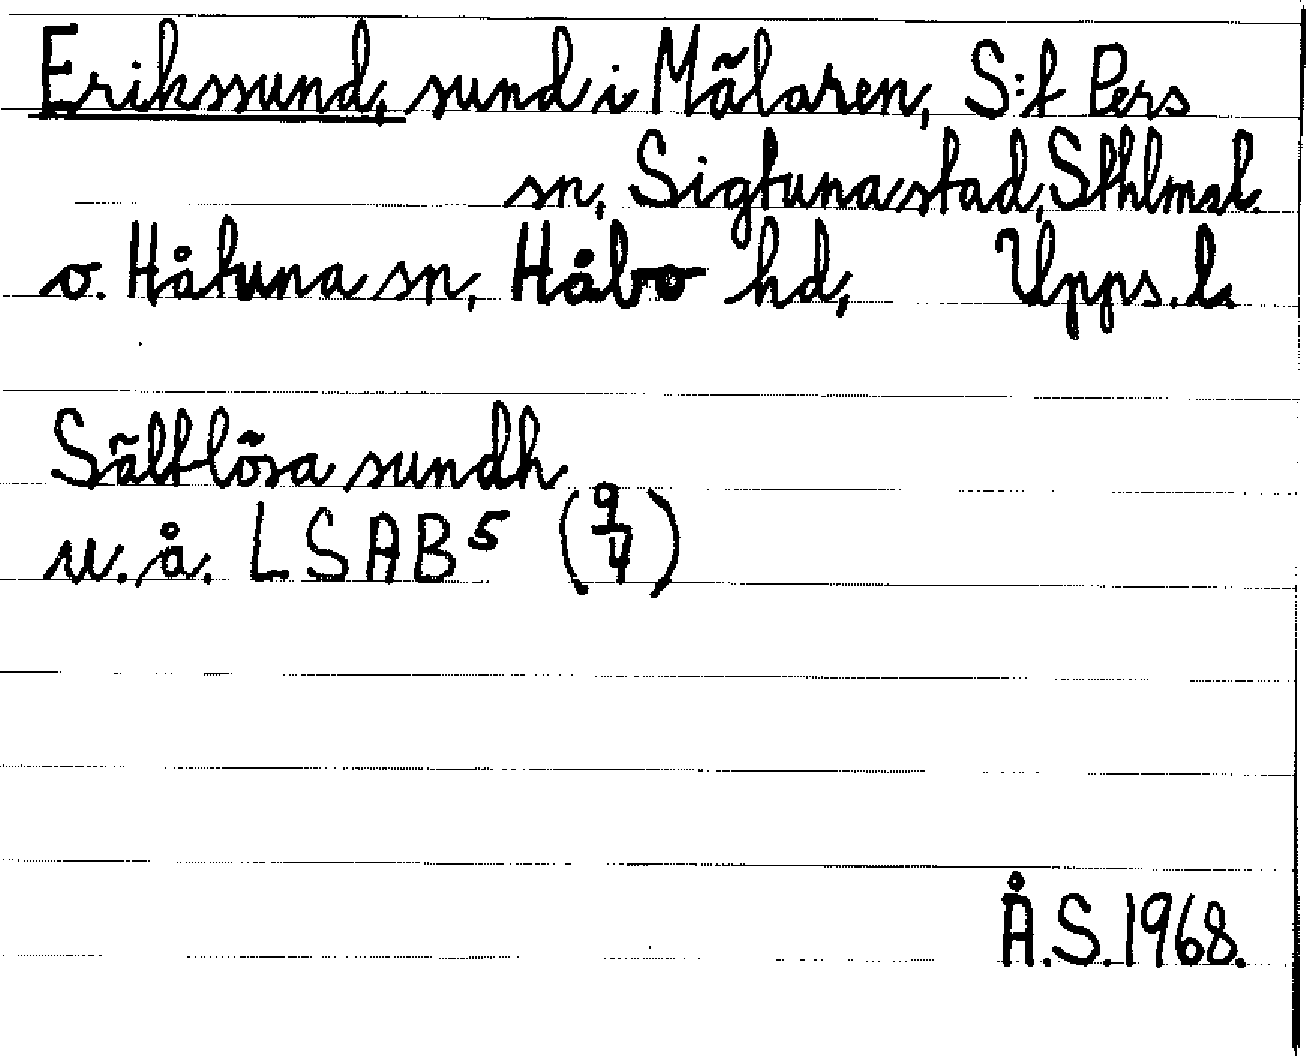 Erikssund, sund i Mälaren, S:t Pers
sn, Sigtuna stad, Sthlms l.
o. Håtuna sn, Håbo hd, Upps. l.
Sältlösa sundh
u. å. LSAB⁵ (9/4)
Å.S. 1968.